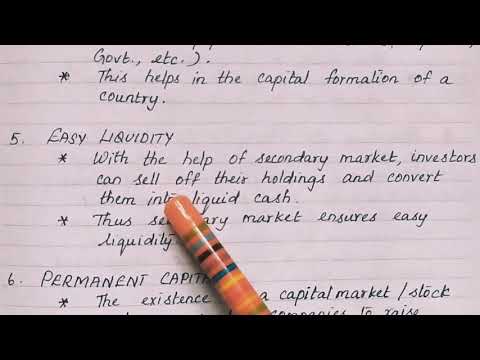 Govt., etc.).
* This helps in the capital formation of a
country.
5. EASY LIQUIDITY
* With the help of secondary market, investors
can sell off their holdings and convert
them into liquid cash.
* Thus secondary market ensures easy
liquidity
6. PERMANENT CAPITAL
* The existence a capital market / stock
companies to raise